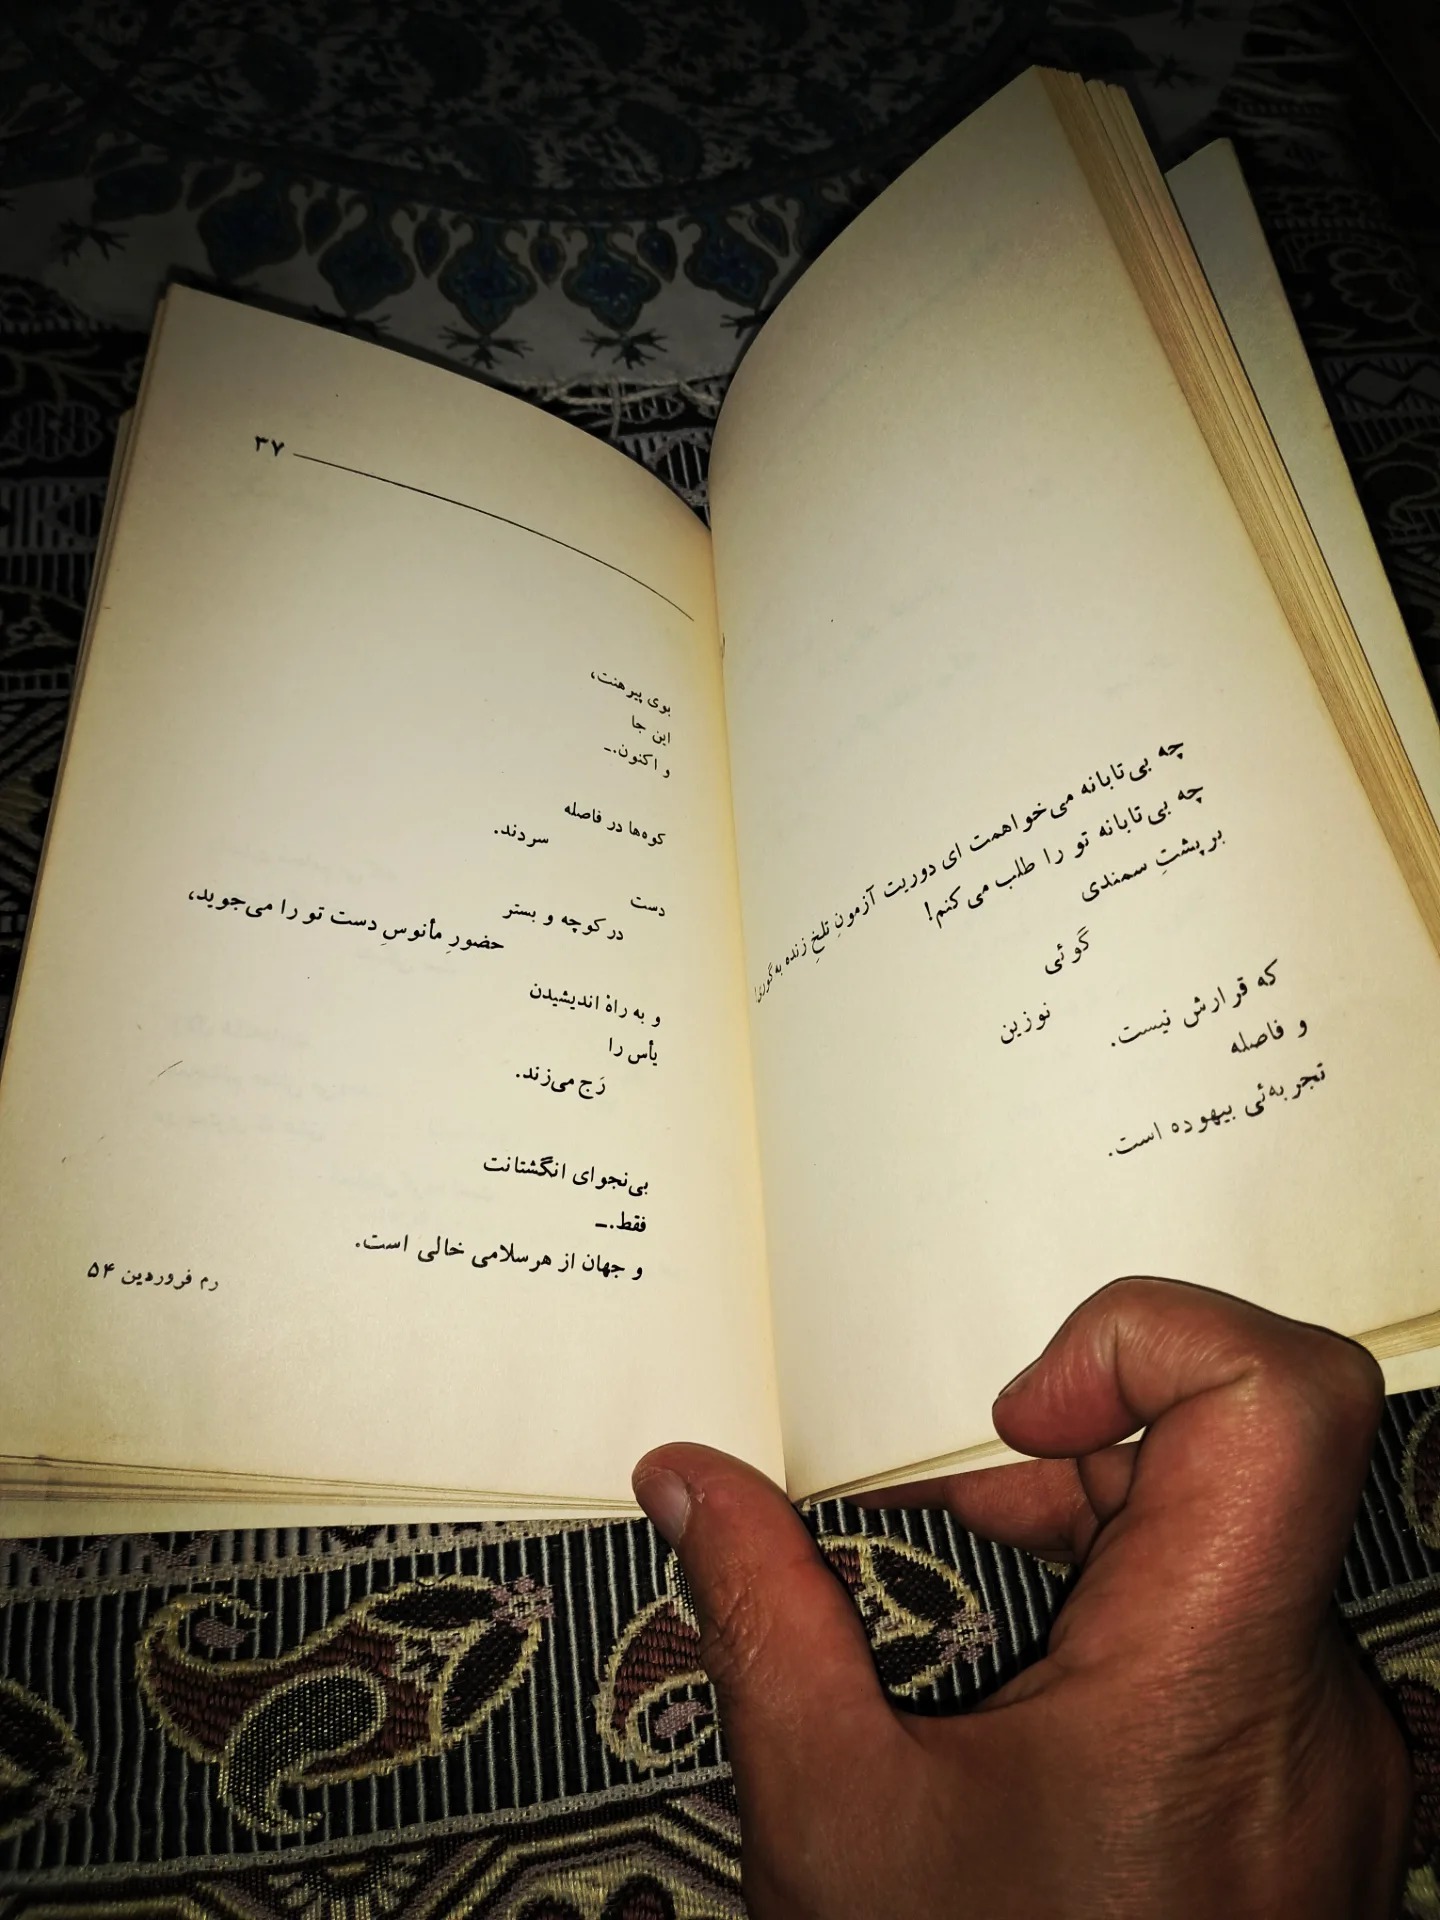 چه بی‌تابانه می‌خواهمت ای دوریت آزمونِ تلخِ زنده به‌گوری!
چه بی‌تابانه تو را طلب می‌کنم!
بر پشتِ سمندی
گوئی
نوزین
که قرارش نیست.
و فاصله
تجربه‌ئی بیهوده است.
۳۷
بوی پیرهنت،
این جا
و اکنون.ـ
کوه‌ها در فاصله
سردند.
دست
در کوچه و بستر
حضورِ مأنوسِ دست تو را می‌جوید،
و به راهْ اندیشیدن
یأس را
رَج می‌زند.
بی‌نجوای انگشتانت
فقط.ـ
و جهان از هر سلامی خالی است.
رم فروردین ۵۴